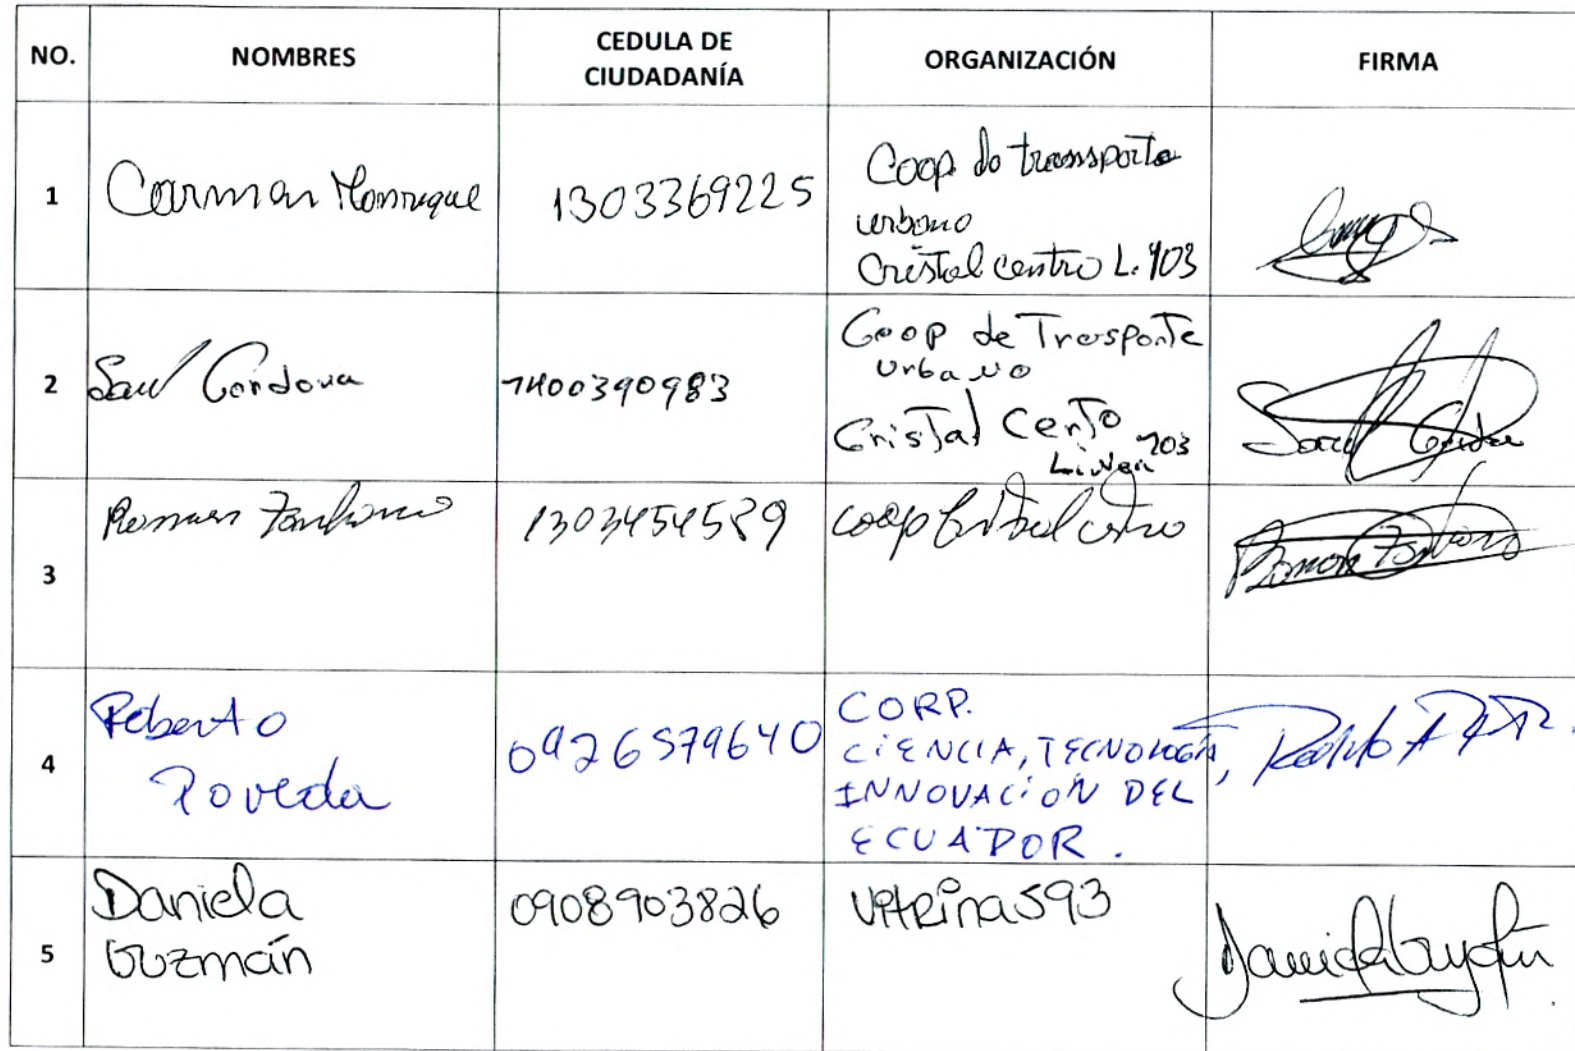 NO. NOMBRES CEDULA DE CIUDADANÍA ORGANIZACIÓN FIRMA
1 Carmen Manrique 1303369225 Coop de transporte
urbano
Cristal centro L. 103
2 Saul Cordova 1400390983 Coop de Trasporte
urbano
Cristal Cento
Linea 103
Saul
3 Ramon 1303454589 coop Cristal centro
Ramon
4 Roberto
Poveda
0926579640
CORP.
CIENCIA, TECNOLOGÍA,
INNOVACIÓN DEL
ECUADOR.
5 Daniela
Guzmán
0908903826 Vitrina593